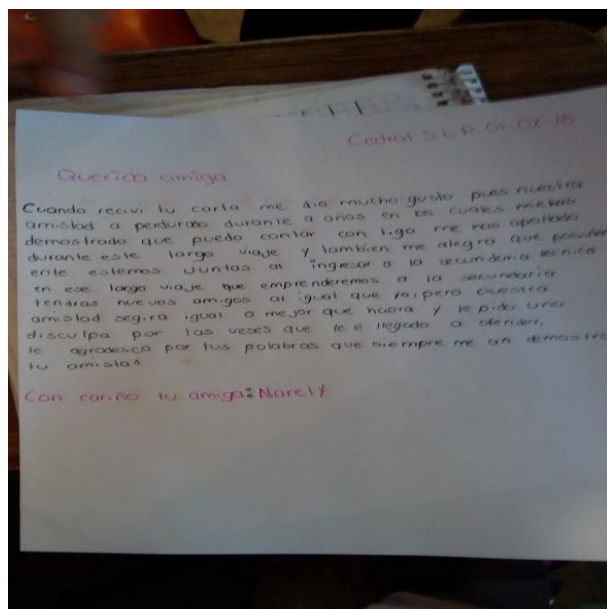 Cedral S.L.P. 01-02-18
Querida amiga
Cuando recivi tu carta me dio mucho gusto pues nuestra
amistad a perdurado durante a años en los cuales me has
demostrado que puedo contar con tigo me has apollado
durante este largo viaje y tambien me alegra que
ente estemos juntas al ingresar a la secundaria tecnica
en ese largo viaje que emprenderemos a la secundaria
tendras nuevos amigos al igual que yo, pero nuestra
amistad segira igual o mejor que haora y te pido una
disculpa por las veses que te e llegado a ofender,
le agradesco por tus palabras que siempre me an demostra
tu amistad
Con cariño tu amiga: Narely